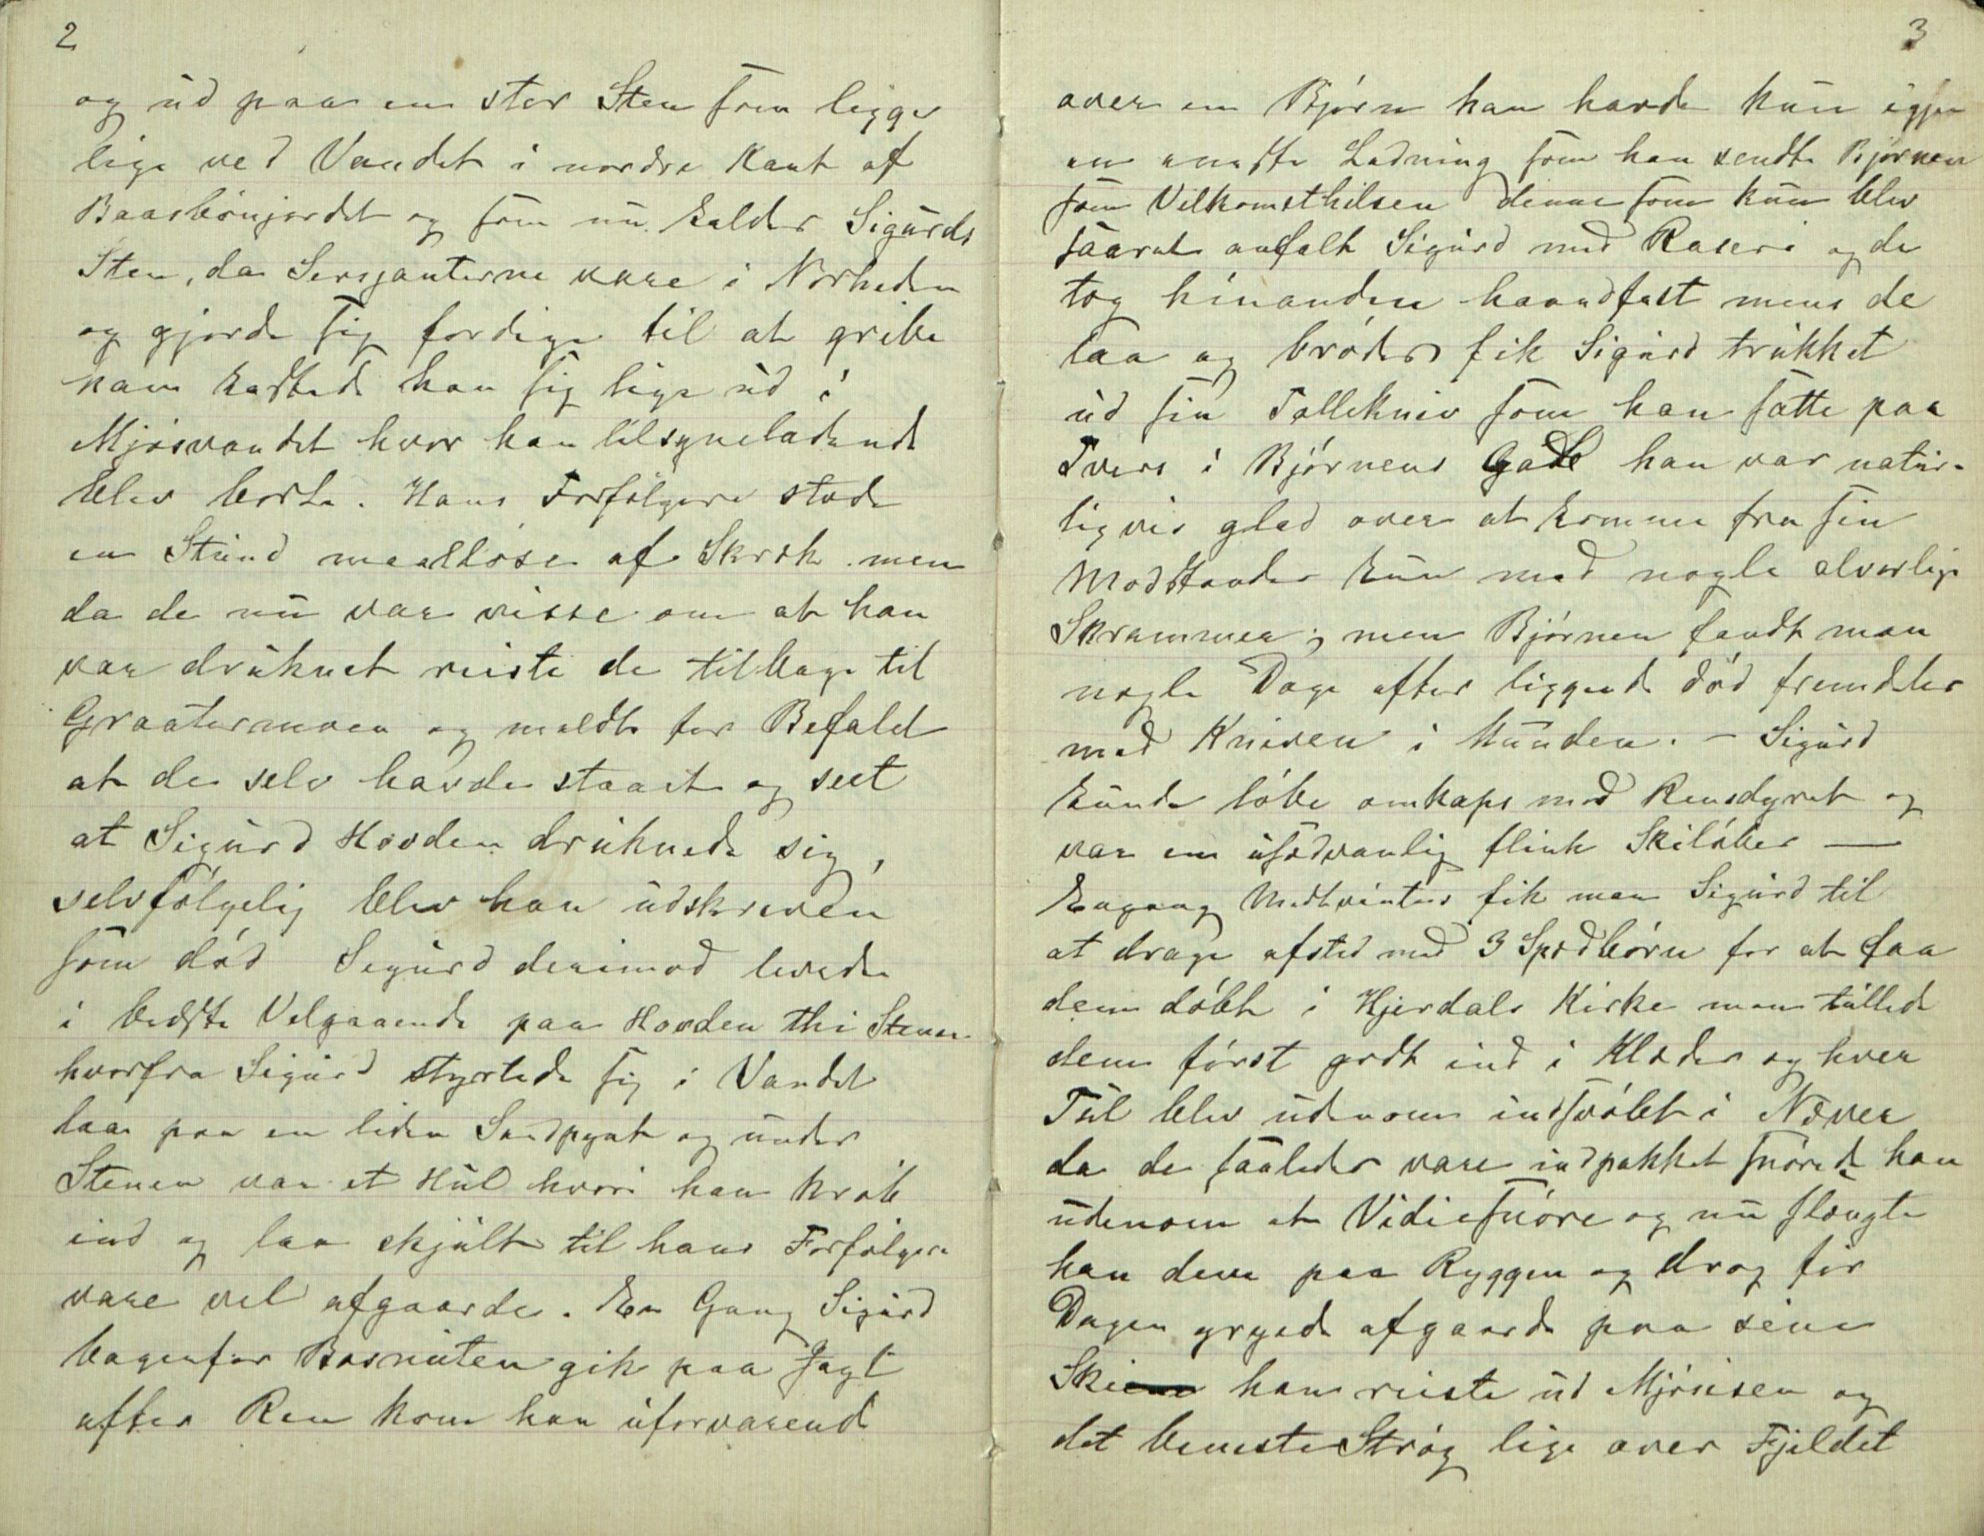 2
og ud paa en stor Sten som ligger
lige ved Vandet i nordre Kant af
Baasbønjordet og som nu kaldes Sigurds
Sten, da Sersjanterne vare i Nærheden
og gjorde sig færdige til at gribe
ham kastede han sig lige ud i
Mjøsvandet hvor han tilsyneladende
blev borte. Hans Forfølgere stode
en Stund maalløse af Skræk men
da de nu var visse om at han
var druknet reiste de tilbage til
Graatermoen og meldte for Befalet
at de selv havde staaet og seet
at Sigurd Hovden druknede sig,
selvfølgelig blev han udskreven
som død Sigurd derimod levede
i bedste Velgaaende paa Hovden thi Stenen
hvorfra Sigurd styrtede sig i Vandet
laa paa en liden Sandpynt og under
Stenen var et Hul hvori han krøb
ind og laa skjult til hans Forfølgere
vare vel afgaarde. En Gang Sigurd
bagenfor Bosnuten gik paa Jagt
efter Ren kom han uforvarende
3
over en Bjørn han havde kun igjen
en eneste Ladning som han sendte Bjørnen
som Velkomsthilsen denne som kun blev
saaret anfalt Sigurd med Raseri og de
tog hinanden haandfast mens de
laa og brødes fik Sigurd trukket
ud sin Tollekniv som han satte paa
Tvers i Bjørnens Gab han var natur-
ligvis glad over at komme fra sin
Modstander kun med nogle alvorlige
Skrammer; men Bjørnen fandt man
nogle Dage efter liggende død fremdeles
med Kniven i Munden. – Sigurd
kunde løbe omkaps med Rensdyret og
var en usædvanlig flink Skiløber —
Engang Midtvinters fik man Sigurd til
at drage afsted med 3 Spædbørn for at faa
dem døbt i Hjerdals Kirke man tullede
dem først godt ind i Klæder og hver
Tul blev udenom indsvøbt i Næver
da de saaledes vare indpakket snørede han
udenom et Vidiesnøre og nu slængte
han dem paa Ryggen og drog før
Dagen gryede afgaarde paa sine
Ski han reiste ud Mjøsisen og
det beneste Strøg lige over Fjeldet